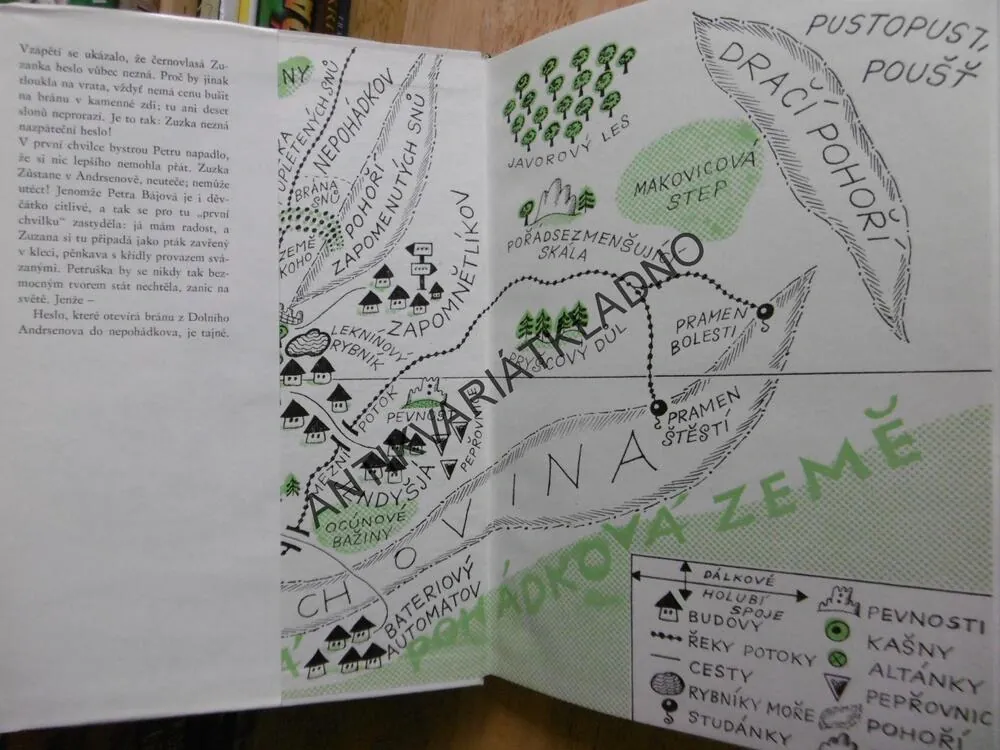 Vzápětí se ukázalo, že černovlasá Zu-
zanka heslo vůbec nezná. Proč by jinak
tloukla na vrata, vždyť nemá cenu bušit
na bránu v kamenné zdi; tu ani deset
slonů neprorazí. Je to tak: Zuzka nezná
nazpáteční heslo!
V první chvilce bystrou Petru napadlo,
že si nic lepšího nemohla přát. Zuzka
Zůstane v Andrsenově, neuteče; nemůže
utéct! Jenomže Petra Bájová je i děv-
čátko citlivé, a tak se pro tu „první
chvilku“ zastyděla: já mám radost, a
Zuzana si tu připadá jako pták zavřený
v kleci, pěnkava s křídly provazem svá-
zanými. Petruška by se nikdy tak bez-
mocným tvorem stát nechtěla, zanic na
světě. Jenže –
Heslo, které otevírá bránu z Dolního
Andrsenova do nepohádkova, je tajné.
NY
UPLETENÝCH SNŮ
NEPOHÁDKOV
BRÁNA
SNŮ
ZEMĚ
KOHO
POHOŘÍ
ZAPOMENUTÝCH SNŮ
ZAPOMNĚTLÍKOV
LEKNÍNOVÝ
RYBNÍK
POTOK
PEVNOST
PEPŘOVNICE
NDYŠJA
OCÚNOVÉ
BAŽINY
CH O V I N A
BATERIOVÝ
AUTOMATOV
JAVOROVÝ LES
MAKOVICOVÁ
STEP
POŘÁDSEZMENŠUJÍC
SKÁLA
PRYSCOVÝ DŮL
PRAMEN
BOLESTI
PRAMEN
ŠTĚSTÍ
DRAČÍ POHOŘÍ
PUSTOPUST,
POUŠŤ
POHÁDKOVÁ ZEMĚ
ANTIKVARIÁTKLADNO
DÁLKOVÉ
HOLUBÍ
SPOJE
BUDOVY
ŘEKY POTOKY
CESTY
RYBNÍKY MOŘE
STUDÁNKY
PEVNOSTI
KAŠNY
ALTÁNKY
PEPŘOVNIC
POHOŘÍ